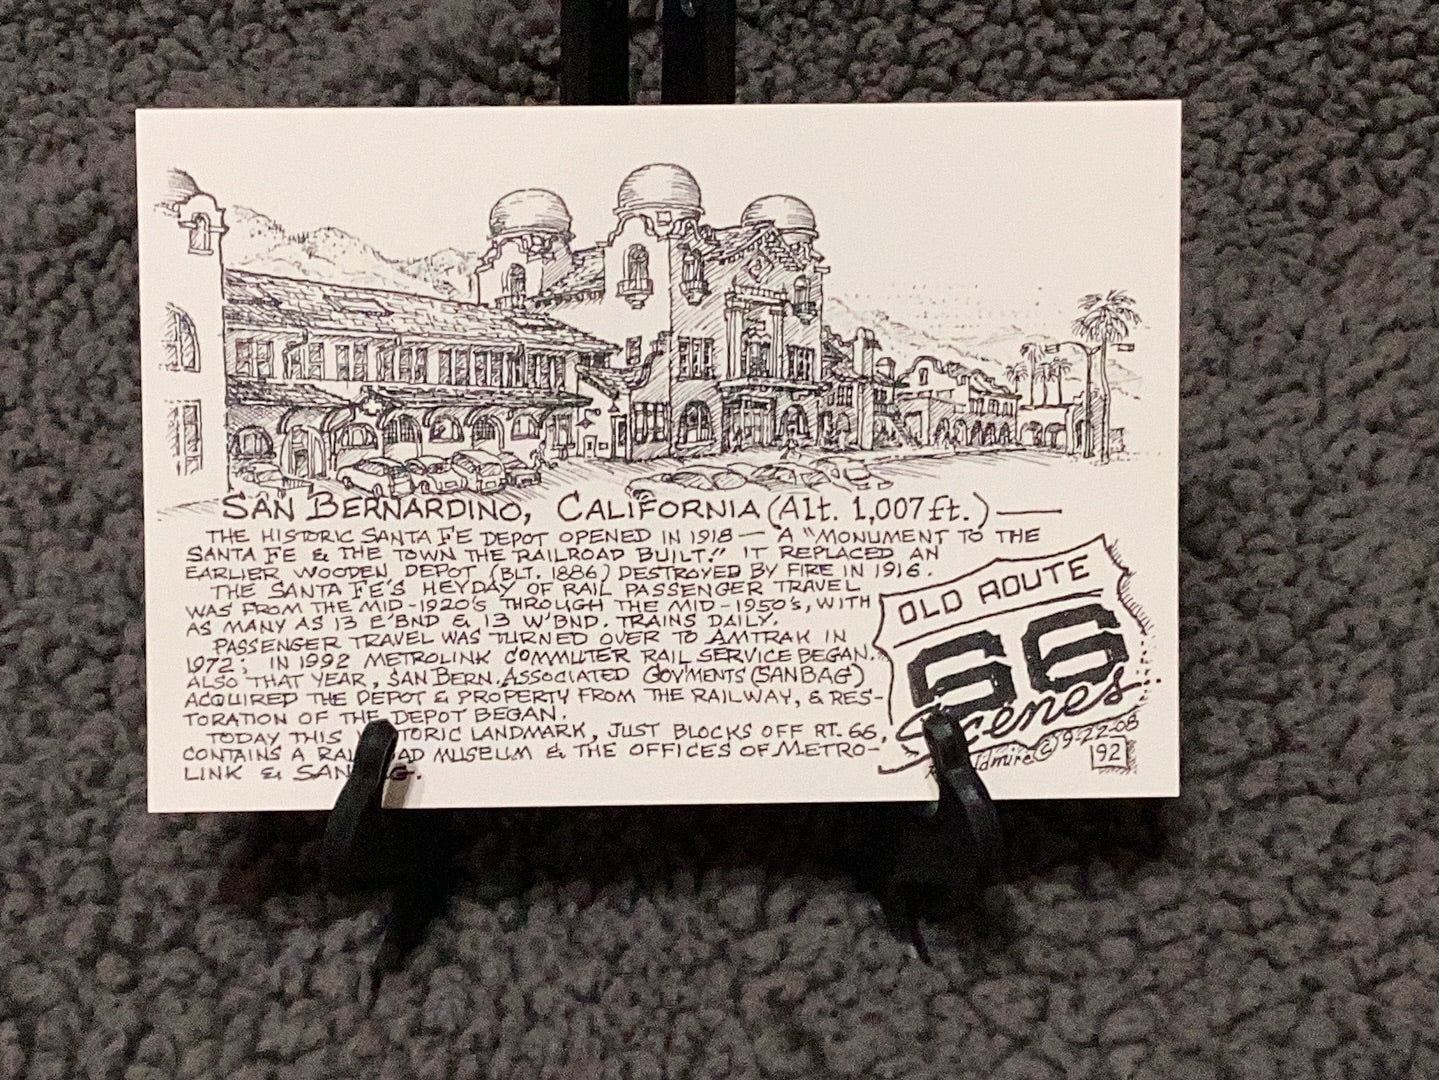 SAN BERNARDINO, CALIFORNIA (Alt. 1,007 ft.)
THE HISTORIC SANTA FE DEPOT OPENED IN 1918 — A "MONUMENT TO THE
SANTA FE & THE TOWN THE RAILROAD BUILT." IT REPLACED AN
EARLIER WOODEN DEPOT (BLT. 1886) DESTROYED BY FIRE IN 1916.
THE SANTA FE'S HEYDAY OF RAIL PASSENGER TRAVEL
WAS FROM THE MID-1920'S THROUGH THE MID-1950'S, WITH
AS MANY AS 13 E'BND & 13 W'BND. TRAINS DAILY.
PASSENGER TRAVEL WAS TURNED OVER TO AMTRAK IN
1972; IN 1992 METROLINK COMMUTER RAIL SERVICE BEGAN.
ALSO THAT YEAR, SAN BERN. ASSOCIATED GOV'MENTS (SANBAG)
ACQUIRED THE DEPOT & PROPERTY FROM THE RAILWAY, & RES-
TORATION OF THE DEPOT BEGAN.
TODAY THIS TORIC LANDMARK, JUST BLOCKS OFF RT. 66,
CONTAINS A RAI AD MUSEUM & THE OFFICES OF METRO-
LINK & SAN G.
OLD ROUTE
66
Scenes
ldmire © 9-22-08
192